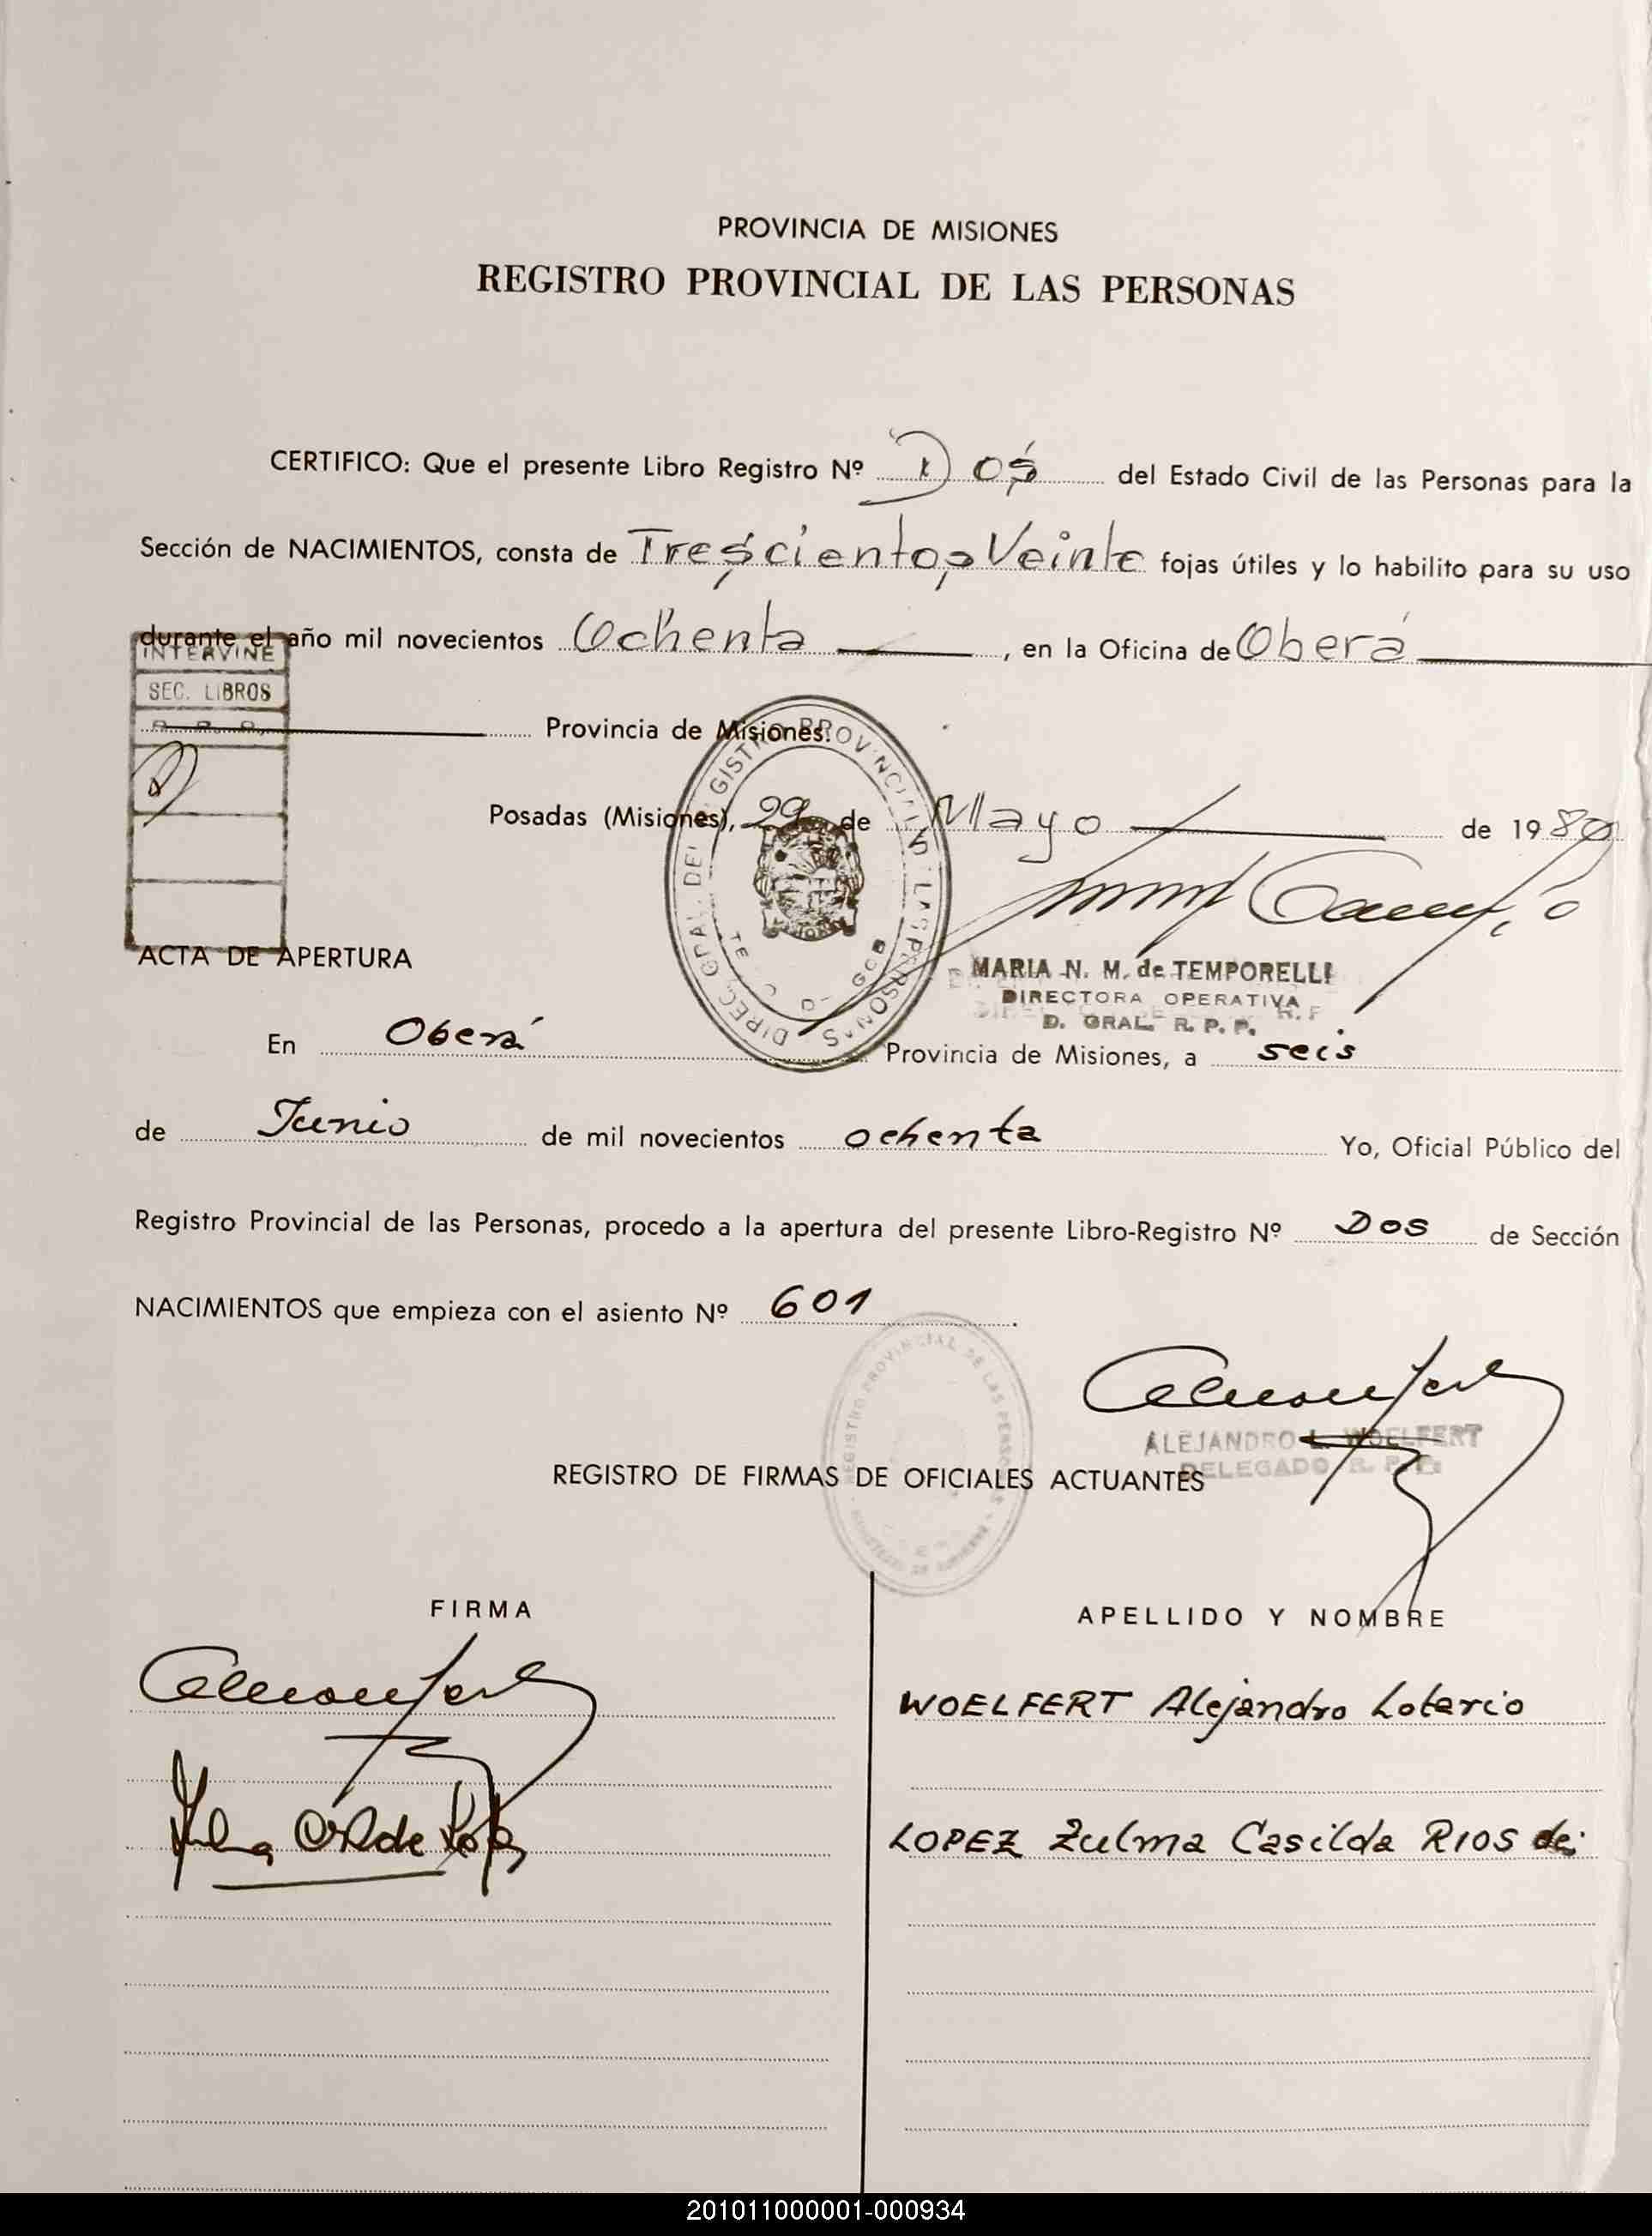 PROVINCIA DE MISIONES
REGISTRO PROVINCIAL DE LAS PERSONAS
CERTIFICO: Que el presente Libro Registro Nº Dos del Estado Civil de las Personas para la
Sección de NACIMIENTOS, consta de Trescientos Veinte fojas útiles y lo habilito para su uso
durante el año mil novecientos Ochenta, en la Oficina de Oberá
INTERVINE
SEC. LIBROS
Provincia de Misiones.
Posadas (Misiones), 29 de Mayo de 1980
MARIA N. M. de TEMPORELLI
DIRECTORA OPERATIVA
D. GRAL. R. P. P.
ACTA DE APERTURA
En Oberá Provincia de Misiones, a seis
de Junio de mil novecientos ochenta Yo, Oficial Público del
Registro Provincial de las Personas, procedo a la apertura del presente Libro-Registro Nº Dos de Sección
NACIMIENTOS que empieza con el asiento Nº 601.
ALEJANDRO L. WOELFERT
DELEGADO R. P. P.
REGISTRO DE FIRMAS DE OFICIALES ACTUANTES
FIRMA APELLIDO Y NOMBRE
WOELFERT Alejandro Lotario
LOPEZ Zulma Casilda RIOS de:
201011000001-000934